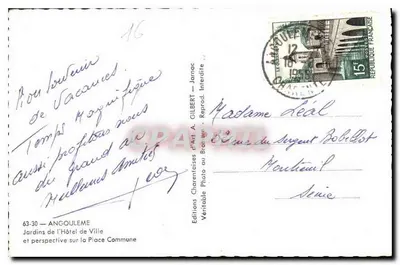 16
Bon Souvenir
de Vacances.
Temps Magnifique
aussi profitons nous
du grand air
Meilleures Amitiés
63-30 — ANGOULEME
Jardins de l'Hôtel de Ville
et perspective sur la Place Commune
Editions Charentaises d'Art A. GILBERT — Jarnac
Véritable Photo au Bromure - Reprod. Interdite
ANGOULEME
12
CHARENTE
15F
REPUBLIQUE FRANÇAISE
Madame Léal
22 rue du Sergent Bobillot
Montreuil
Seine